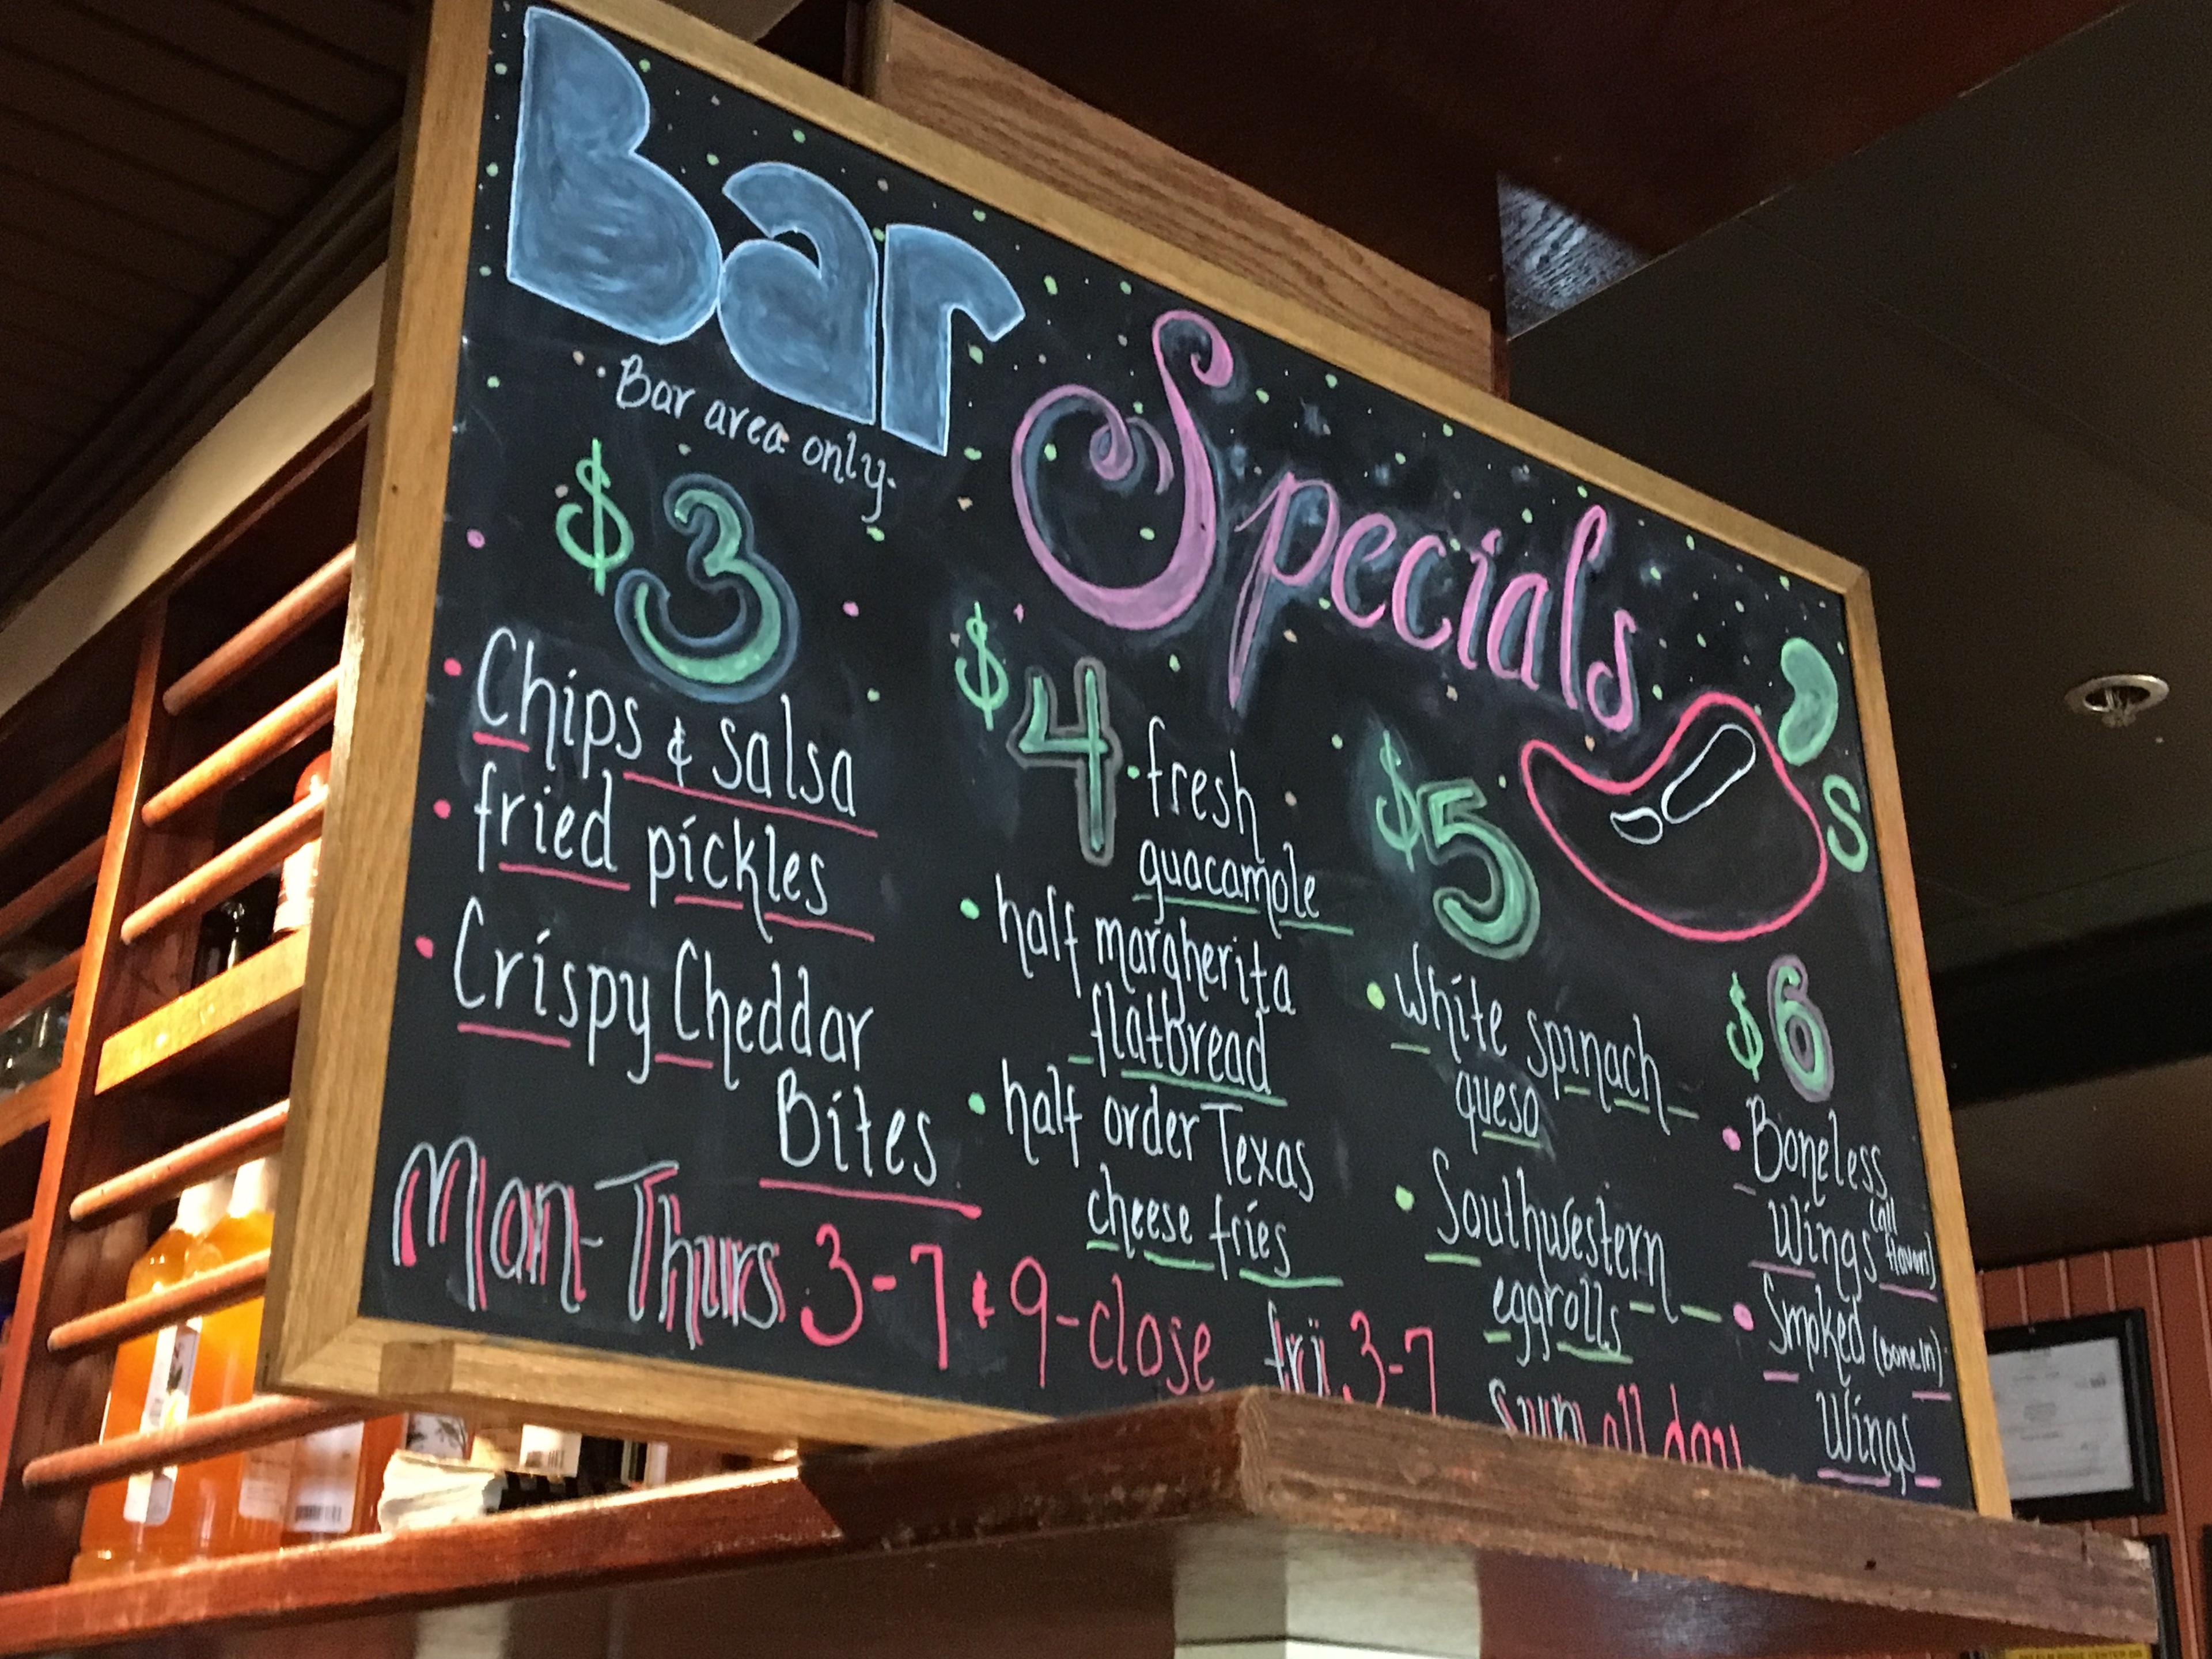 Bar
Specials
Bar area only.
$3
• Chips & salsa
• fried pickles
• Crispy Cheddar
Bites
$4
• fresh
guacamole
• half margherita
flatbread
• half order Texas
cheese fries
$5
• White spinach
queso
• Southwestern
eggrolls
's
$6
• Boneless
Wings (all
flavors)
• Smoked (Bone In)
Wings
Mon-Thurs 3-7 & 9-close fri 3-7
Sun all day